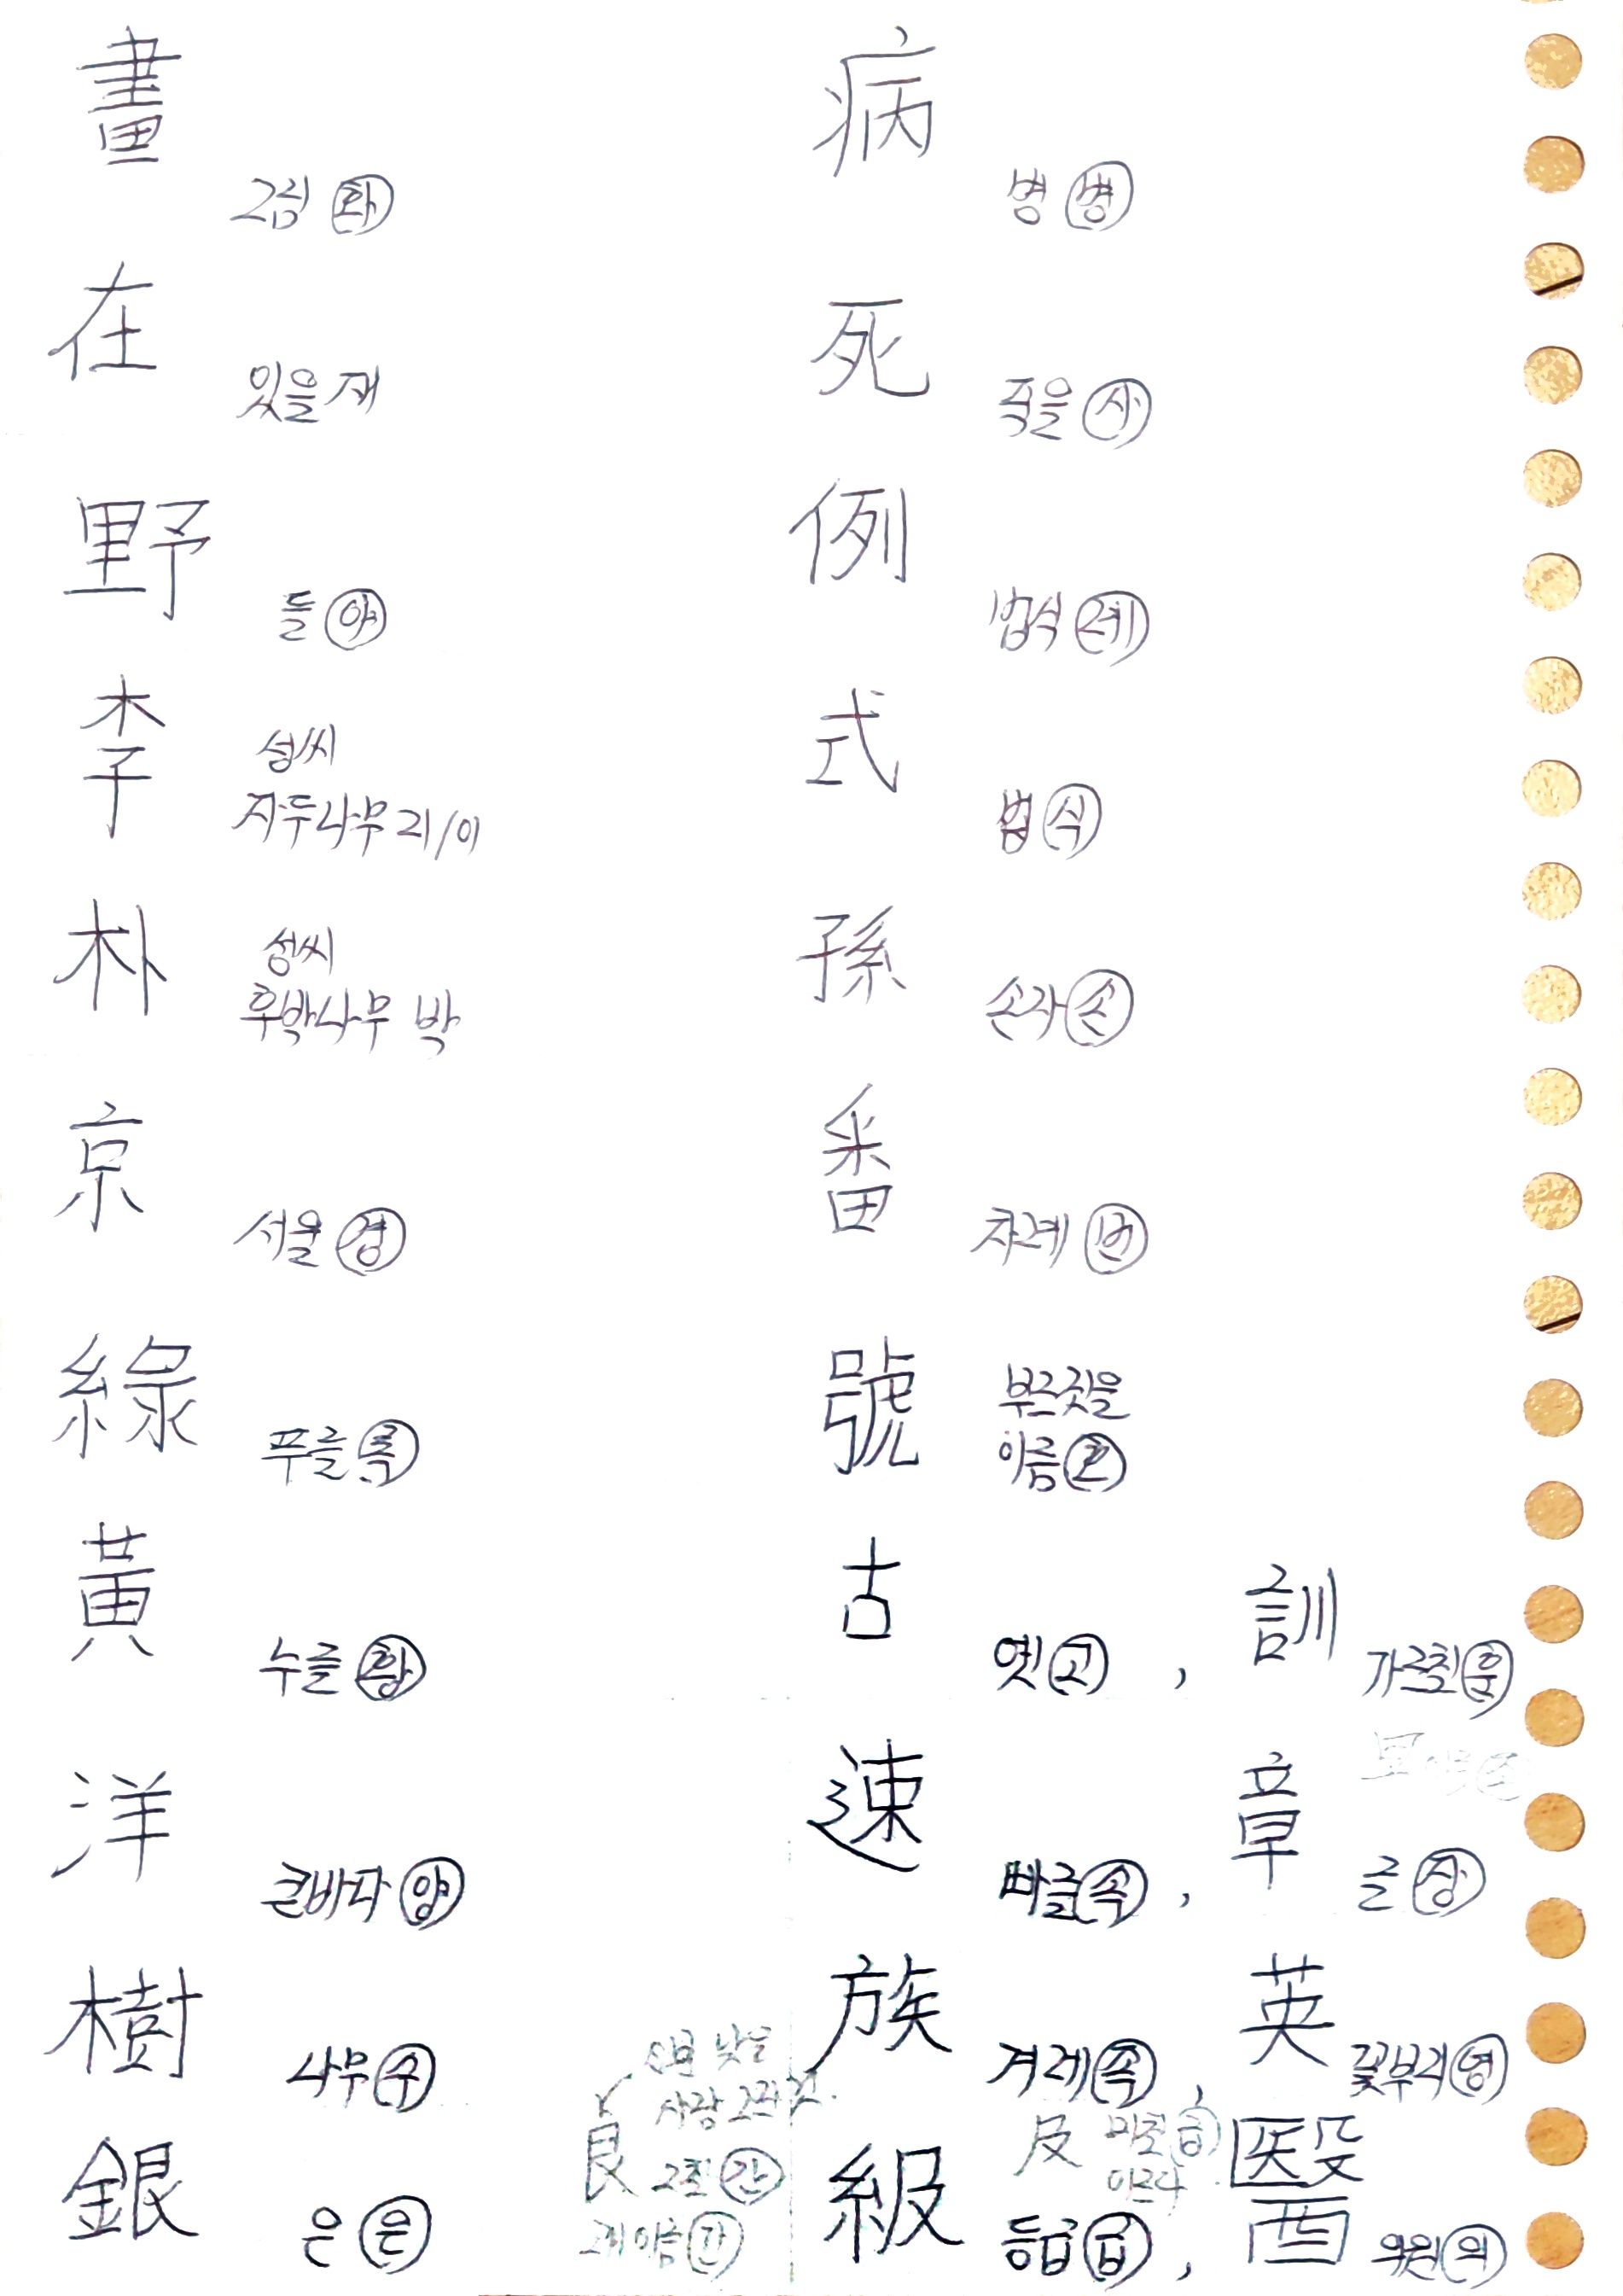 畫
그림 화
在
있을 재
野
들 야
李
성씨
자두나무 리/이
朴
성씨
후박나무 박
京
서울 경
綠
푸를 록
黃
누를 황
洋
큰바다 양
樹
나무 수
銀
은 은
艮
그칠 간
病
병 병
死
죽을 사
例
법식 례
式
법 식
孫
손자 손
番
차례 번
號
부르짖을
이름 호
古
옛 고 ,
訓
가르칠 훈
速
빠를 속 ,
章
글 장
族
겨레 족 ,
英
꽃부리 영
及
미칠 급
이르다
級
등급 급 ,
醫
의원 의